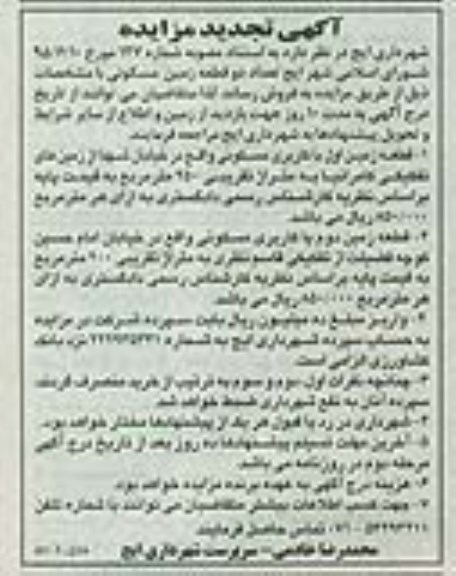 آگهی تجدید مزایده
شهرداری ایج در نظر دارد به استناد مصوبه شماره ۱۲۷ مورخ
شورای اسلامی شهر ایج تعداد دو قطعه زمین مسکونی با مشخصات
ذیل از طریق مزایده به فروش رساند. لذا متقاضیان می توانند از تاریخ
درج آگهی به مدت ۱۰ روز جهت بازدید از زمین و اطلاع از سایر شرایط
و تحویل پیشنهادها به شهرداری ایج مراجعه فرمایند.
۱- قطعه زمین اول با کاربری مسکونی واقع در خیابان شهدا از زمین های
تفکیکی به متراژ تقریبی ۲۵۰ مترمربع به قیمت پایه
براساس نظریه کارشناس رسمی دادگستری به ازای هر مترمربع
۸۵۰/۰۰۰ ریال می باشد.
۲- قطعه زمین دوم با کاربری مسکونی واقع در خیابان امام حسین
کوچه فضیلت از تفکیکی قاسم نظری به متراژ تقریبی ۲۰۰ مترمربع
به قیمت پایه براساس نظریه کارشناس رسمی دادگستری به ازای
هر مترمربع ۸۵۰/۰۰۰ ریال می باشد.
۲- واریز مبلغ ده میلیون ریال بابت سپرده شرکت در مزایده
به حساب سپرده شهرداری ایج به شماره نزد بانک
کشاورزی الزامی است.
۳- چنانچه نفرات اول، دوم و سوم به ترتیب از خرید منصرف گردند
سپرده آنان به نفع شهرداری ضبط خواهد شد.
۴- شهرداری در رد یا قبول هر یک از پیشنهادها مختار خواهد بود.
۵- آخرین مهلت تسلیم پیشنهادها ده روز بعد از تاریخ درج آگهی
مرحله دوم در روزنامه می باشد.
۶- هزینه درج آگهی به عهده برنده مزایده خواهد بود.
۷- جهت کسب اطلاعات بیشتر متقاضیان می توانند با شماره تلفن
تماس حاصل فرمایند.
محمدرضا خادمی - سرپرست شهرداری ایج